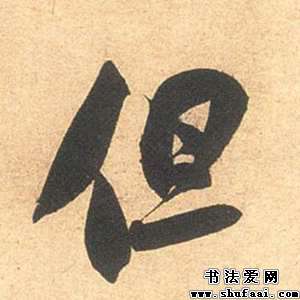 但
书法爱网
www.shufaai.com